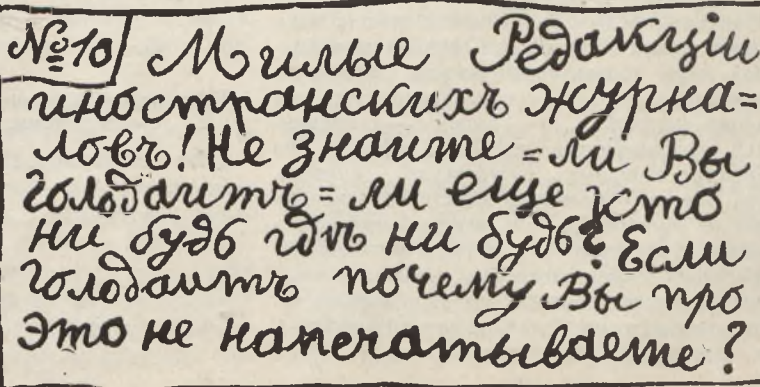 №10 Милые Редакціи
иностранскихъ журна=
ловъ! Не знаите=ли Вы
голодаитъ=ли еще кто
ни будь гдѣ ни будь? Если
голодаитъ почему Вы про
это не напечатываете?